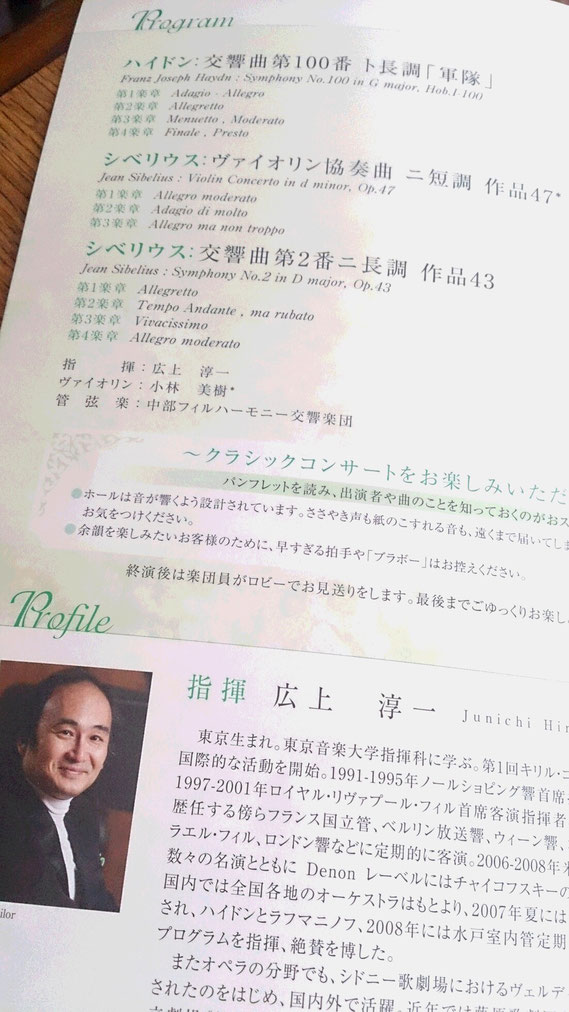 Program
ハイドン：交響曲第100番 ト長調「軍隊」
Franz Joseph Haydn : Symphony No.100 in G major, Hob.I-100
第1楽章 Adagio - Allegro
第2楽章 Allegretto
第3楽章 Menuetto , Moderato
第4楽章 Finale , Presto
シベリウス：ヴァイオリン協奏曲 ニ短調 作品47*
Jean Sibelius : Violin Concerto in d minor, Op.47
第1楽章 Allegro moderato
第2楽章 Adagio di molto
第3楽章 Allegro ma non troppo
シベリウス：交響曲第2番ニ長調 作品43
Jean Sibelius : Symphony No.2 in D major, Op.43
第1楽章 Allegretto
第2楽章 Tempo Andante , ma rubato
第3楽章 Vivacissimo
第4楽章 Allegro moderato
指 揮：広上 淳一
ヴァイオリン：小林 美樹*
管 弦 楽：中部フィルハーモニー交響楽団
～クラシックコンサートをお楽しみいただ
パンフレットを読み、出演者や曲のことを知っておくのがおス
●ホールは音が響くよう設計されています。ささやき声も紙のこすれる音も、遠くまで届いてしま
お気をつけください。
●余韻を楽しみたいお客様のために、早すぎる拍手や「ブラボー」はお控えください。
終演後は楽団員がロビーでお見送りをします。最後までごゆっくりお楽し
Profile
指揮 広上 淳一 Junichi Hir
東京生まれ。東京音楽大学指揮科に学ぶ。第1回キリル・コ
国際的な活動を開始。1991-1995年ノールショピング響首席
1997-2001年ロイヤル・リヴァプール・フィル首席客演指揮者
歴任する傍らフランス国立管、ベルリン放送響、ウィーン響、
ラエル・フィル、ロンドン響などに定期的に客演。2006-2008年米
数々の名演とともに Denon レーベルにはチャイコフスキーの
国内では全国各地のオーケストラはもとより、2007年夏には
され、ハイドンとラフマニノフ、2008年には水戸室内管定期
プログラムを指揮、絶賛を博した。
またオペラの分野でも、シドニー歌劇場におけるヴェルデ
されたのをはじめ、国内外で活躍。近年では藤原歌劇
ilor